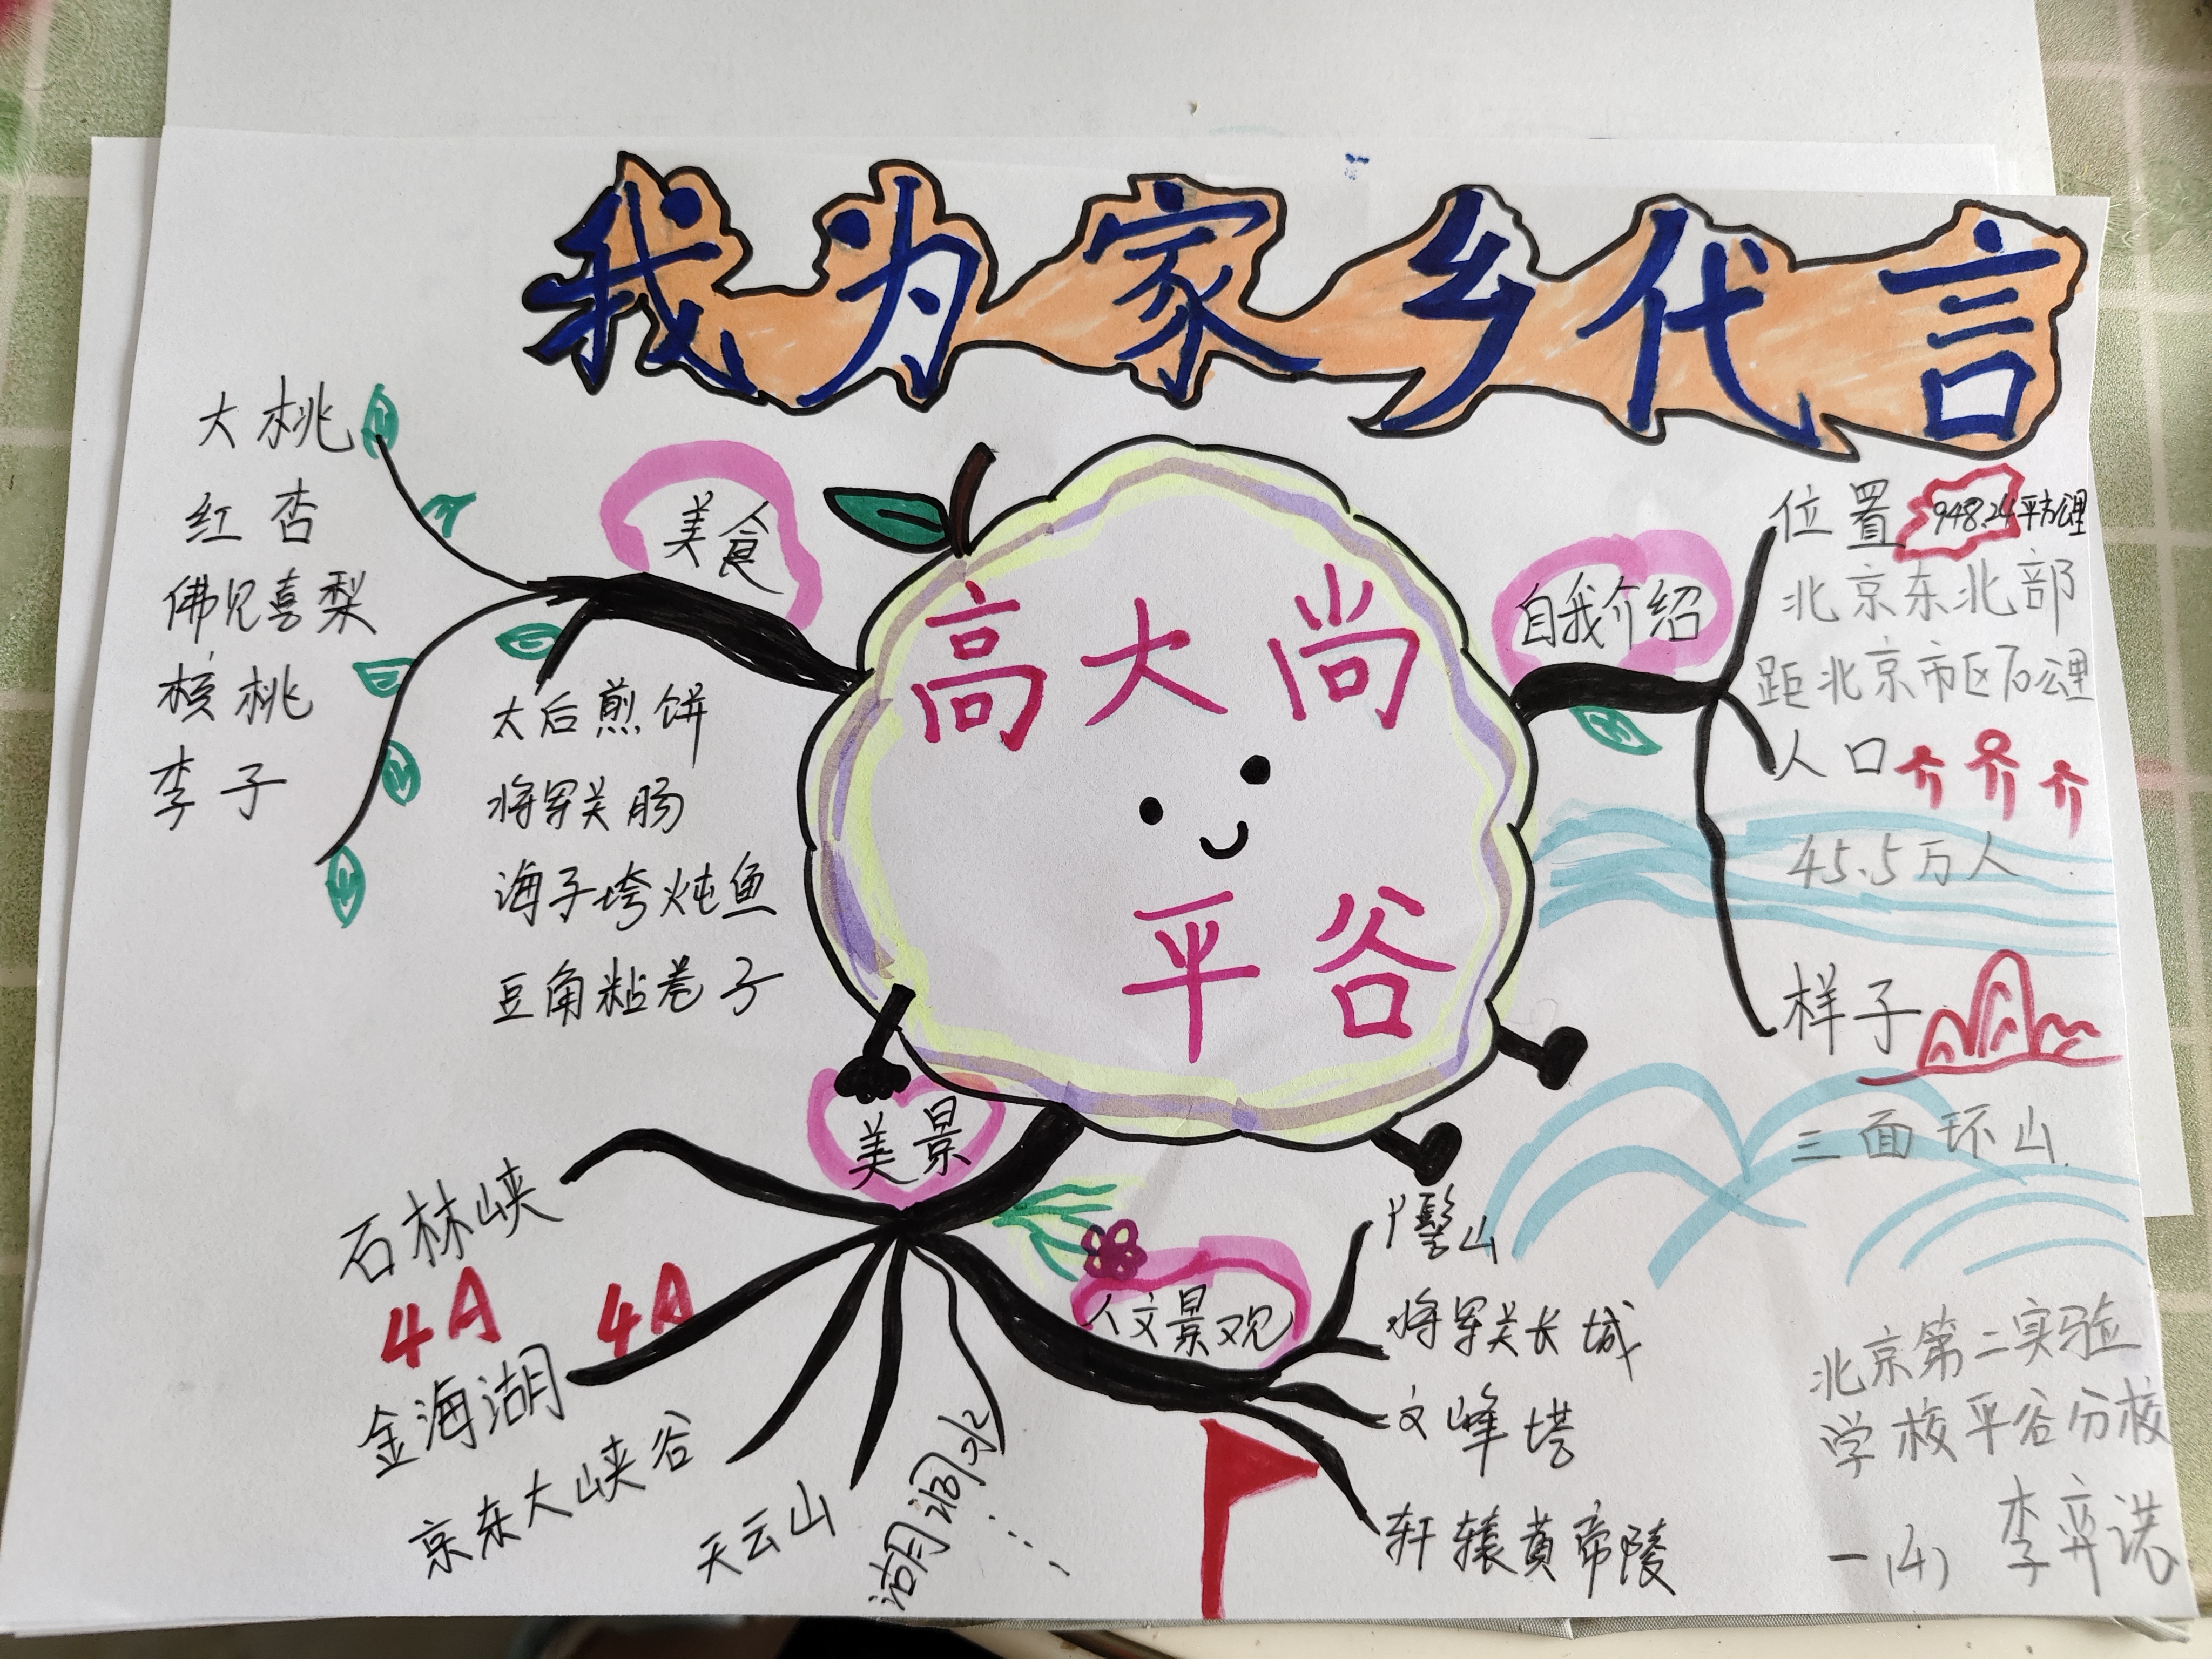 我为家乡代言
高大尚
平谷
美食
大桃
红杏
佛见喜梨
核桃
李子
太后煎饼
将军关肠
海子垮炖鱼
豆角粘卷子
自我介绍
位置 948.24平方公里
北京东北部
距北京市区70公里
人口
45.5万人
样子
三面环山
美景
石林峡
4A
4A
金海湖
京东大峡谷
天云山
湖洞水
……
人文景观
丫髻山
将军关长城
文峰塔
轩辕黄帝陵
北京第二实验
学校平谷分校
一(4) 李弈诺